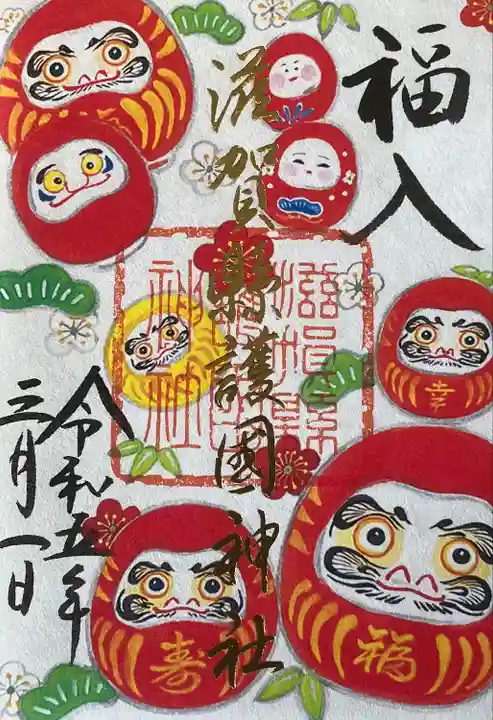 福入
滋賀縣護國神社
令和五年
三月一日
幸
福
寿